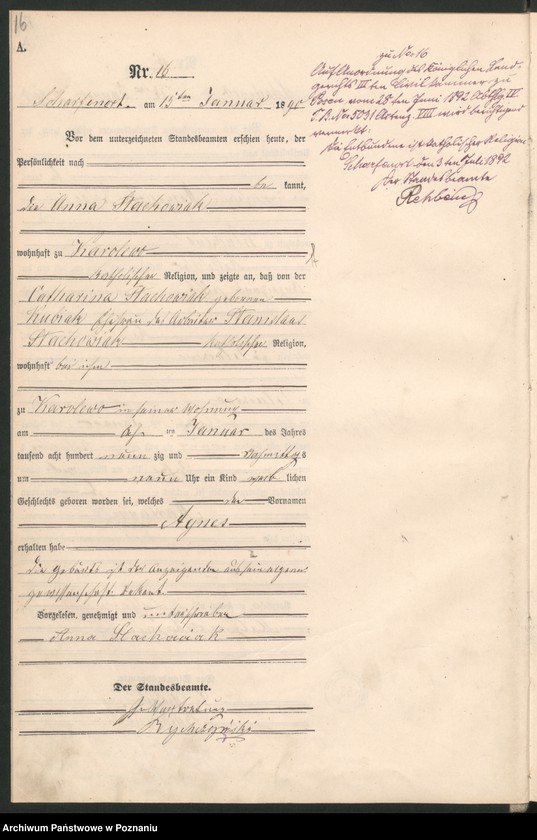 16
A.
Nr. 16
Scharfenort am 15ten Januar 1890
Vor dem unterzeichneten Standesbeamten erschien heute, der
Persönlichkeit nach
be kannt,
die Anna Stachowiak
wohnhaft zu Karolewo
katholischer Religion, und zeigte an, daß von der
Catharina Stachowiak geborenen
Kubiak Ehefrau des Arbeiter Stanislaus
Stachowiak katholischer Religion,
wohnhaft bei ihm
zu Karolewo in seiner Wohnung
am ten Januar des Jahres
tausend acht hundert neun zig und Nachmittags
um neun Uhr ein Kind weib lichen
Geschlechts geboren worden sei, welches den Vornamen
Agnes
erhalten habe
Die Geburt ist der Anzeigenden aus eigener
Wissenschaft bekannt.
Vorgelesen, genehmigt und unterschrieben
Anna Stachowiak
Der Standesbeamte.
In Vertretung
zu No. 16
Auf Anordnung des Königlichen Land-
gerichts III ten Civilkammer zu
Posen vom 25 ten Juni 1892
T.R. No. 5031 VIII wird
vermerkt:
Die Entbundene ist katholischer Religion
Scharfenort den 3 ten Juli 1892
Der Standesbeamte
Rehbein
Archiwum Państwowe w Poznaniu